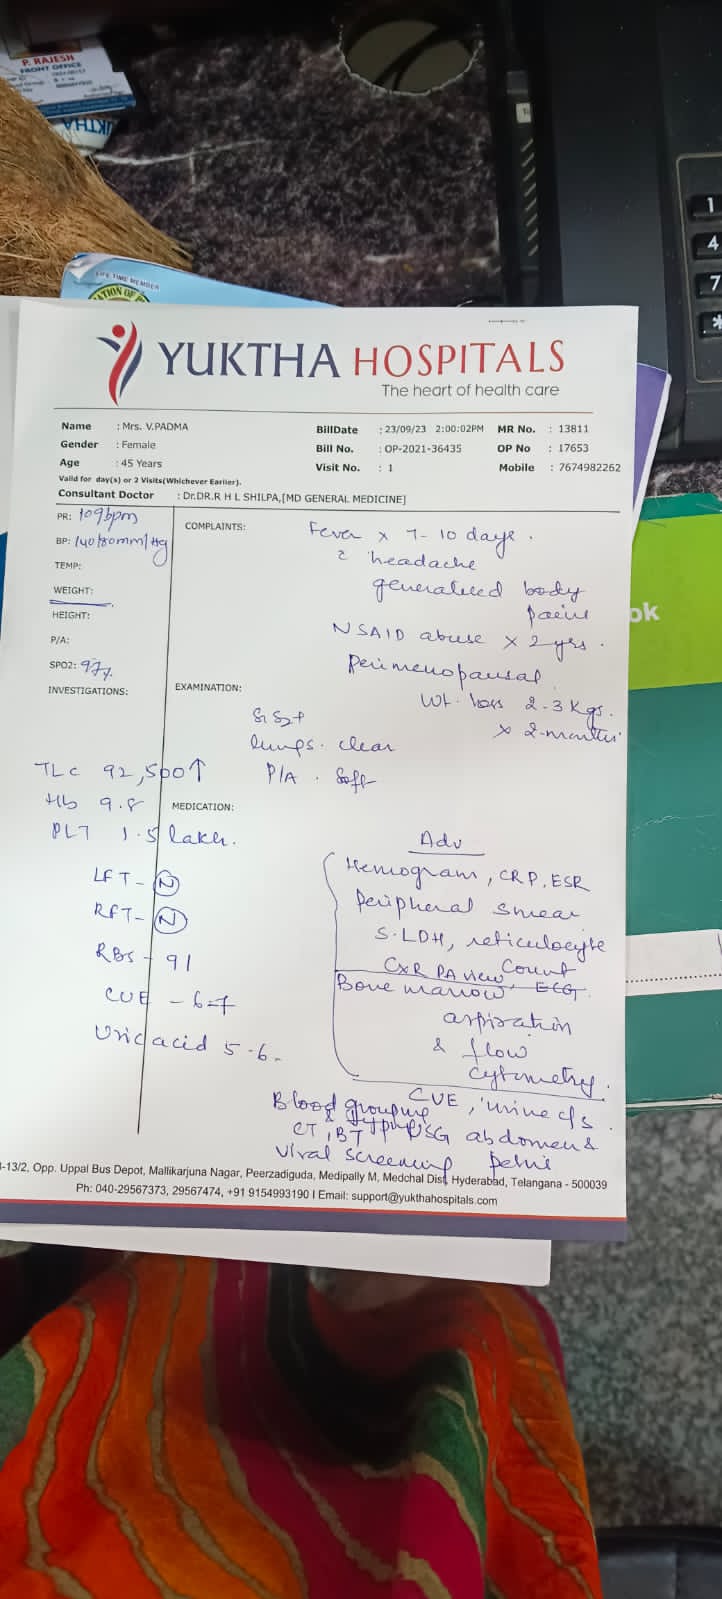 P. RAJESH
FRONT OFFICE
LIFE TIME MEMBER
ATION OF
1
4
7
*
ok
YUKTHA HOSPITALS
The heart of health care
Name : Mrs. V.PADMA
Gender : Female
Age : 45 Years
BillDate : 23/09/23 2:00:02PM MR No. : 13811
Bill No. : OP-2021-36435 OP No : 17653
Visit No. : 1 Mobile : 7674982262
Valid for day(s) or 2 Visits(Whichever Earlier).
Consultant Doctor : Dr.DR.R H L SHILPA,[MD GENERAL MEDICINE]
PR: 109bpm
BP: 140/80mm/Hg
TEMP:
WEIGHT:
HEIGHT:
P/A:
SPO2: 97%
INVESTIGATIONS:
COMPLAINTS:
Fever x 7-10 days.
headache
generalised body
pains
NSAID abuse x 2yrs.
Perimenopausal
Wt. loss 2-3 Kgs.
x 2-months
EXAMINATION:
S1 S2+
lungs. clear
P/A. Soft
TLC 92,500↑
Hb 9.8
PLT 1.5 lakh.
LFT - N
RFT - N
RBS - 91
CUE - 6-7
Uric acid 5.6
MEDICATION:
Adv
Hemogram, CRP, ESR
Peripheral smear
S.LDH, reticulocyte
Count
CXR PA view, ECG.
Bone marrow
aspiration
& flow
cytometry.
CUE, urine c/s.
Blood grouping
& typing
CT, BT USG abdomen &
Viral screening pelvis
-13/2, Opp. Uppal Bus Depot, Mallikarjuna Nagar, Peerzadiguda, Medipally M, Medchal Dist, Hyderabad, Telangana - 500039
Ph: 040-29567373, 29567474, +91 9154993190 I Email: support@yukthahospitals.com